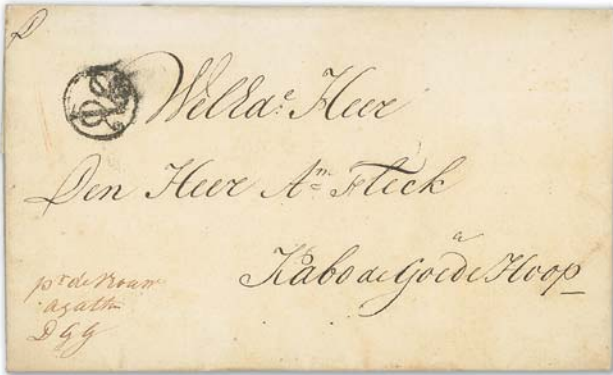 D
WelEdᵉ: Heer
Den Heer Aᵐ= Fleck
a
Kabo de Goede Hoop
pʳ de Vrouw
Agatha
D G G